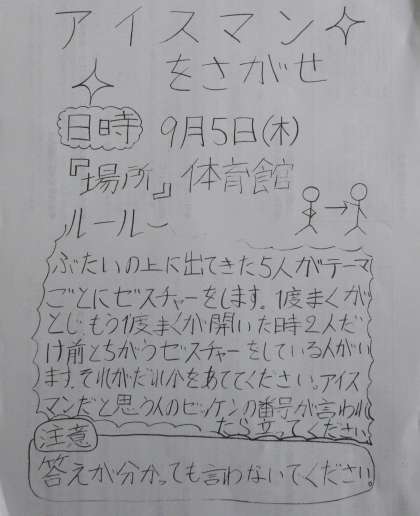 アイスマン
をさがせ
日時 9月5日(木)
『場所』体育館
ルール
ぶたいの上に出てきた5人がテーマ
ごとにゼスチャーをします。1度まくが
とじ、もう1度まくが開いた時2人だ
け前とちがうゼスチャーをしている人がい
ます。それがだれかをあててください。アイス
マンだと思う人のゼッケンの番号が言われ
たら立ってください。
注意
答えが分かっても言わないでください。